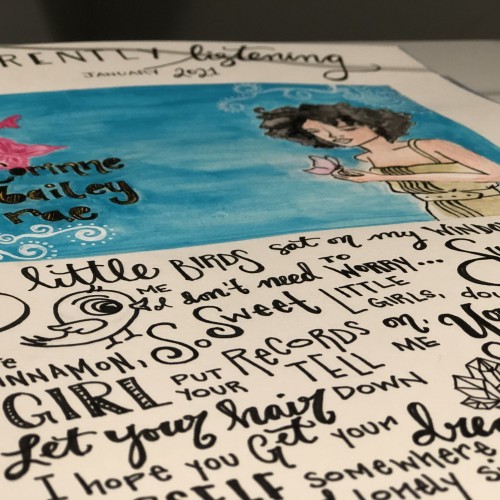 RENTLY listening
JANUARY 2021
Corinne
Bailey
Rae
little BIRDS sat on my WINDO
ME I don't need TO WORRY...
INNAMON, So Sweet LITTLE GIRLS, do
GIRL PUT YOUR RECORDS on, TELL ME
Let your hair DOWN
I hope you Get your drea
SELF somewhere
lonely